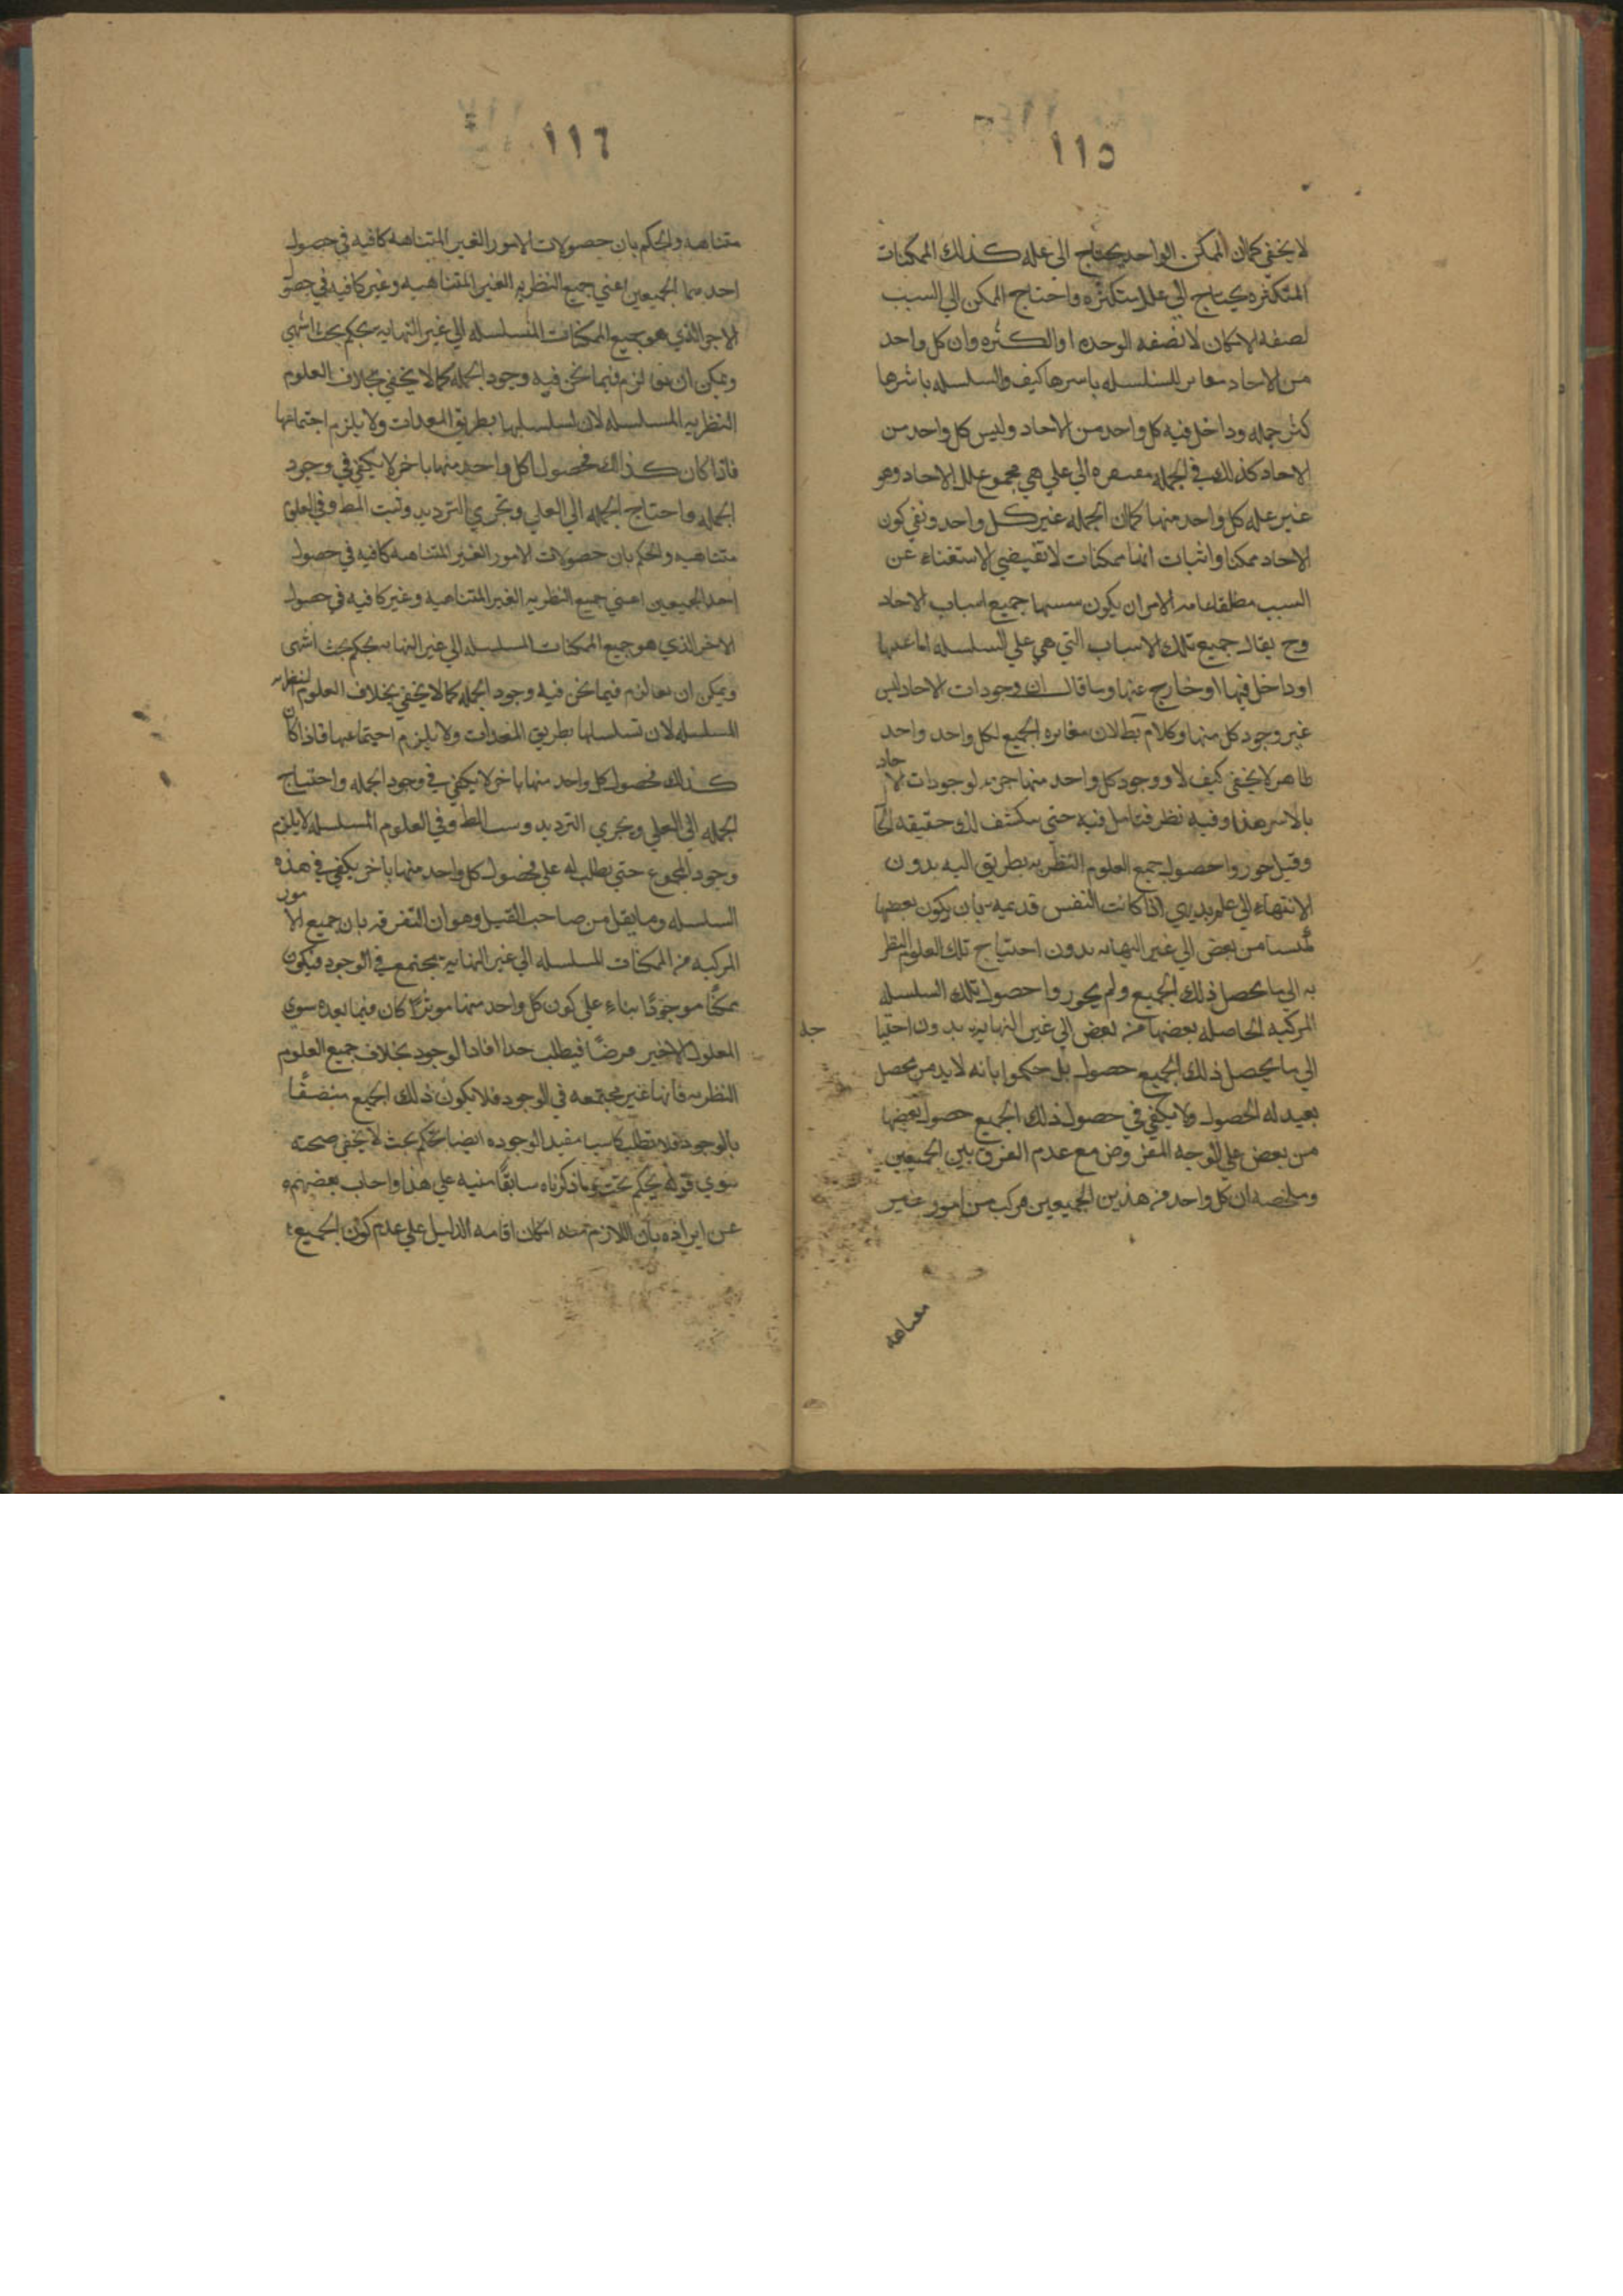 ١١٥
لا يخفى كما ان الممكن الواحد يحتاج الى عله كذلك الممكنات
المتكثره يحتاج الي علل متكثره واحتاج الممكن الي السبب
لصفه الامكان لا لصفه الوحده او الكثره وان كل واحد
من الاحاد للسلسله باسرها كيف والسلسله باسرها
جمله وداخل فيه كل واحد من الاحاد وليس كل واحد من
الاحاد كذلك في الجمله الي علي هي مجموع علل الاحاد وهو
غير عله كل واحد منها كما ان الجمله غير كل واحد ونفي كون
الاحاد ممكنا واثبات انها ممكنات لا تقيضي الاستغناء عن
السبب مطلقا الامر ان يكون جميع اسباب الاحاد
وح يقال جميع تلك الاسباب التي هي علي السلسله اما عينها
او داخل فيها او خارج عنها وما قال ان وجودات الاحاد ليس
غير وجود كل منها وكلام بطلان مغايره الجميع لكل واحد واحد
ظاهر لا يخفى كيف لا ووجود كل واحد منها جزء لوجودات الاحاد
بالاسر هذا وفيه نظر فتامل فيه حتى ينكشف لك حقيقه
وقيل جوزوا حصول جميع العلوم النظريه بطريق اليه بدون
الانتهاء الي علم بديهي اذا كانت النفس قديمه بان يكون بعضها
من بعض الي غير النهايه بدون احتياج تلك العلوم النظر
يه الي ما يحصل ذلك الجميع ولم يجوزوا حصول تلك السلسله
المركبه الحاصله بعضها من بعض الي غير النهايه بدون احتيا
الي ما يحصل ذلك الجميع حصول بل حكموا بانه لابد من محصل
له الحصول ولا يكفي في حصول ذلك الجميع حصول بعضها
من بعض علي الوجه المفروض مع عدم الفرق بين الجميعين
وملخصه ان كل واحد من هذين الجميعين مركب من امور غير
متناهيه
١١٦
متناهيه والحكم بان حصولات الامور الغير المتناهيه كافيه في حصول
احد الجميعين اعني جميع النظريه الغير المتناهيه وغير كافيه في حصو
الاخر الذي هو جميع الممكنات المتسلسله الي غير النهايه بحكم بحث انتهي
ويمكن ان لزم فيما نحن فيه وجود الجمله كما لا يخفي بخلاف العلوم
النظريه المسلسله لان تسلسلها بطريق المعدات ولا يلزم اجتماعها
فاذا كان كذلك فحصول كل واحد منها باخر لا يكفي في وجود
الجمله واحتاج الجمله الي العلي وتجري الترديد وثبت المط وفي العلو
متناهيه والحكم بان حصولات الامور الغير المتناهيه كافيه في حصول
احد الجميعين اعني جميع النظريه الغير المتناهيه وغير كافيه في حصول
الاخر الذي هو جميع الممكنات المسلسله الي غير النهايه بحكم بحث انتهى
ويمكن ان لزم فيما نحن فيه وجود الجمله كما لا يخفي بخلاف العلوم النظريه
المسلسله لان تسلسلها بطريق المعدات ولا يلزم اجتماعها فاذا كان
كذلك فحصول كل واحد منها باخر لا يكفي في وجود الجمله واحتياج
الجمله الي العلي ويجري الترديد المط وفي العلوم المسلسله لا يلزم
وجود المجموع حتي يطلب له علي فحصول كل واحد منها باخر يكفي في هذه
السلسله وما يقل من صاحب القيل وهو ان التفرقه بان جميع الامور
المركبه من الممكنات المسلسله الي غير النهايه مجتمع في الوجود فيكون
ممكنا موجودًا بناء علي كون كل واحد منها موثرًا كان فيما بعده سوي
المعلول الاخير فرضًا فيطلب افاد الوجود بخلاف جميع العلوم
النظريه فانها غير مجتمعه في الوجود فلا يكون ذلك الجميع متصفًا
بالوجود فلا يطلب كاسبا مفيد الوجوده ايضا تحكم بحث لا يخفي صحته
سوي قوله بحكم بحث ذكرناه سابقًا منيه علي هذا واجاب بعضهم
عن ايراده بان اللازم منه امكان اقامه الدليل علي عدم كون الجميع